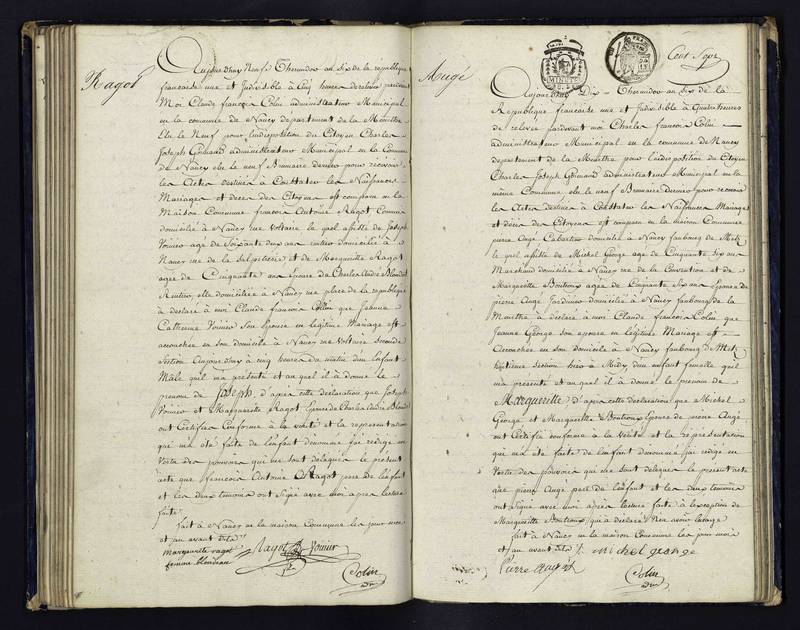 Ragot
Aujourdhuy Neuf Thermidor an Six de la republique
francaise une et Indivisible à Cinq heures derelevée pardevant
Moi Claude françois Colin administrateur Municipal
en la commune de Nancy departement de la Meurthe
Elu le Neuf pour Lindisposition du Citoyen Charles
Joseph Gormand administrateur Municipal en la Commune
de Nancy elu le neuf Brumaire dernier pour recevoir
les Actes destinés à Constater les Naissances
Mariages et deces des Citoyens est comparu en la
Maison Commune francois Antoine Ragot Commis
domicilié à Nancy rue Voltaire le quel assisté de Joseph
Voinier age de Soixante deux ans rentier domicilié à
Nancy rue de la Salpetrerie et de Marguerite Ragot
agée de Cinquante ans Epouse de Charles Blondeau
Rentier, elle domiciliée à Nancy rue place de la republique
à declaré à moi Claude francois Collin que Jeanne
Catherine Voinier Son Epouse en legitime Mariage est
accouchée en son domicile à Nancy rue Voltaire seconde
Section aujourdhuy à cinq heures du matin dun Enfant
Male quil ma présenté et au quel il à donné le
prenom de Joseph, d'après cette déclaration que Joseph
Voinier et Marguerite Ragot Epouse de Charles Blondeau
ont Certifiée Conforme à la vérité et la représentation
qui ma été faite de lenfant dénommé jai rédigé en
Vertu des pouvoirs qui me sont delegués le présent
acte que francois Antoine Ragot pere de lenfant
et les deux temoins ont Signé avec moi apres lecture
faite
fait à Nancy en la maison Commune les jour mois
et an avant dits
marguerite ragot
femme blondeau
Ragot Voinier
Colin
adm
Augé
MINUTE
Cent Sept
Aujourdhuy Dix Thermidor an six de la
République francaise une et Indivisible à Quatre heures
de relevée pardevant moi Charles francois Colin
administrateur Municipal en la commune de Nancy
departement de la Meurthe pour lindisposition du Citoyen
Charles Joseph Gormand administrateur Municipal en la
même Commune elu le neuf Brumaire Dernier pour recevoir
les Actes destinés à Constater les Naissances Mariages
et décès des Citoyens est comparu en la maison Commune
pierre Augé Cabaretier domicilié à Nancy faubourg de Metz
le quel assisté de Michel George agé de Cinquante Six ans
Marchand domicilié à Nancy rue de la Convention et de
Marguerite Boutroux agée de Cinquante Six ans Epouse de
pierre Augé Jardinier domicilié à Nancy faubourg de la
Meurthe à déclaré à moi Claude francois Colin que
Jeanne George son épouse en legitime Mariage est
Accouchée en son domicile à Nancy faubourg de Metz
huitieme section hier à Midy dun enfant femelle quil
ma présenté et au quel il à donné le prenom de
Marguerite d'apres cette déclaration que Michel
George et Marguerite Boutroux Epouse de pierre Augé
ont Certifié conforme à la Vérité et la représentation
qui ma été faite de lenfant denommé jai redigé en
Vertu des pouvoirs qui me sont delegués le présent acte
que pierre Augé pere de lenfant et les deux temoins
ont Signé avec moi après lecture faite à lexception de
Marguerite Boutroux qui à déclaré Nen avoir lusage
fait à Nancy en la maison Commune les jour mois
et an avant dits Michel george
Pierre Augé
Colin
adm